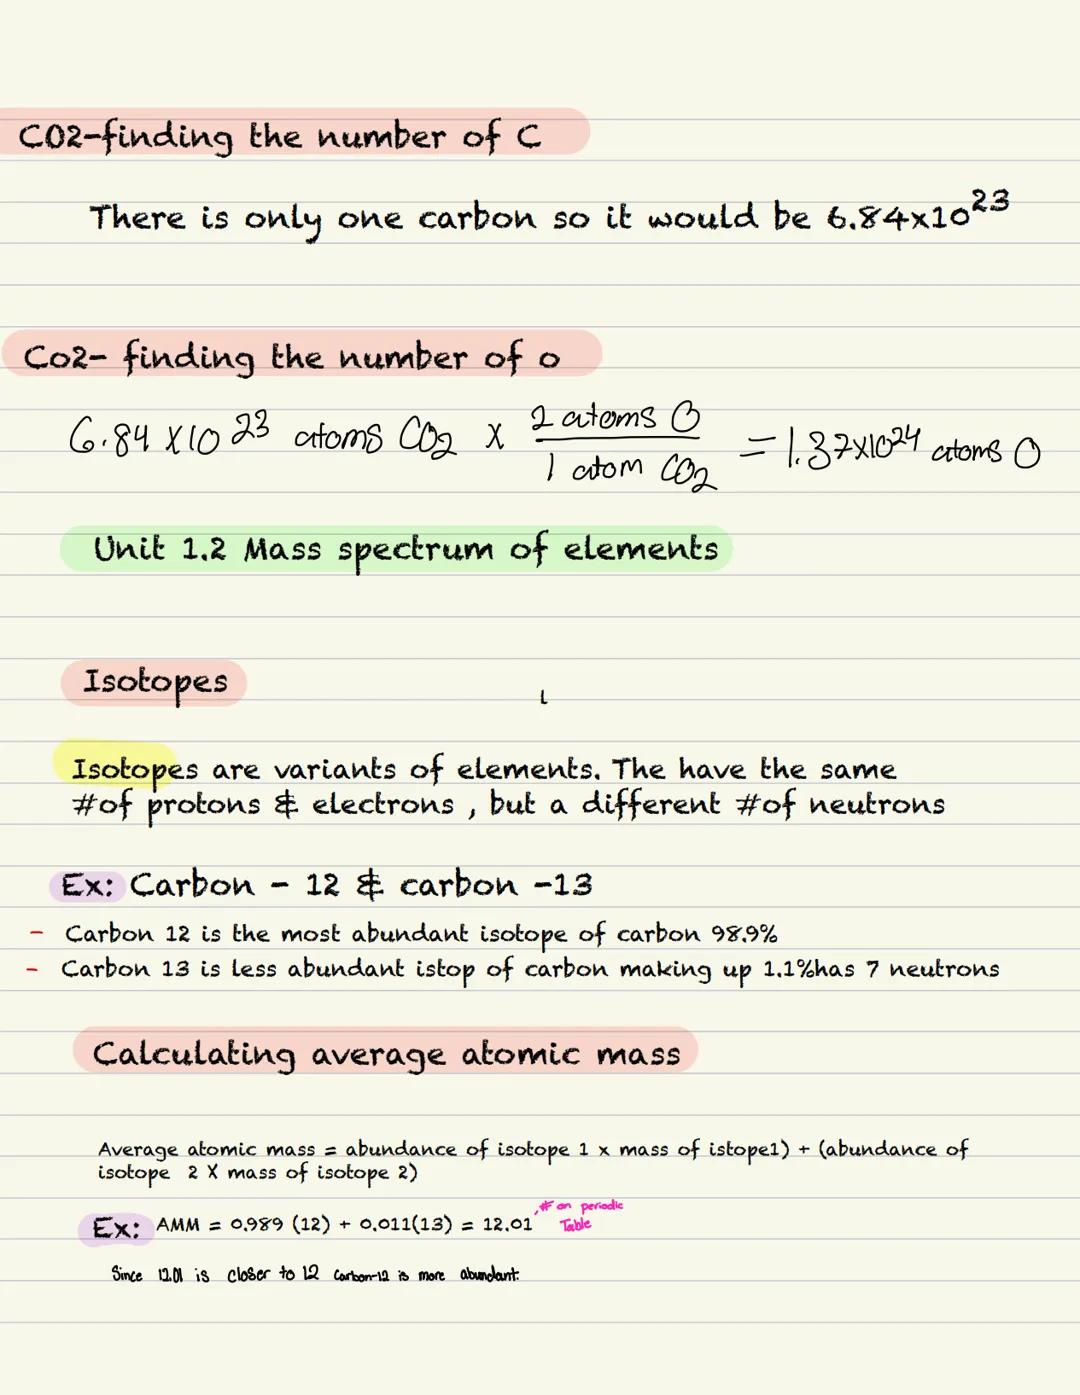 CO2-finding the number of C
There is only one carbon so it would be 6.84x10²³
Co2- finding the number of o
6.84 X10²³ atoms CO₂ x 2 atoms O / 1 atom CO₂ = 1.37x10²⁴ atoms O
Unit 1.2 Mass spectrum of elements
Isotopes
Isotopes are variants of elements. The have the same
#of protons & electrons , but a different #of neutrons
Ex: Carbon - 12 & carbon -13
- Carbon 12 is the most abundant isotope of carbon 98.9%
- Carbon 13 is less abundant istop of carbon making up 1.1%has 7 neutrons
Calculating average atomic mass
Average atomic mass = abundance of isotope 1 x mass of istope1) + (abundance of
isotope 2 X mass of isotope 2)
Ex: AMM = 0.989 (12) + 0.011(13) = 12.01 # on periodic
Table
Since 12.01 is closer to 12 carbon-12 is more abundant.